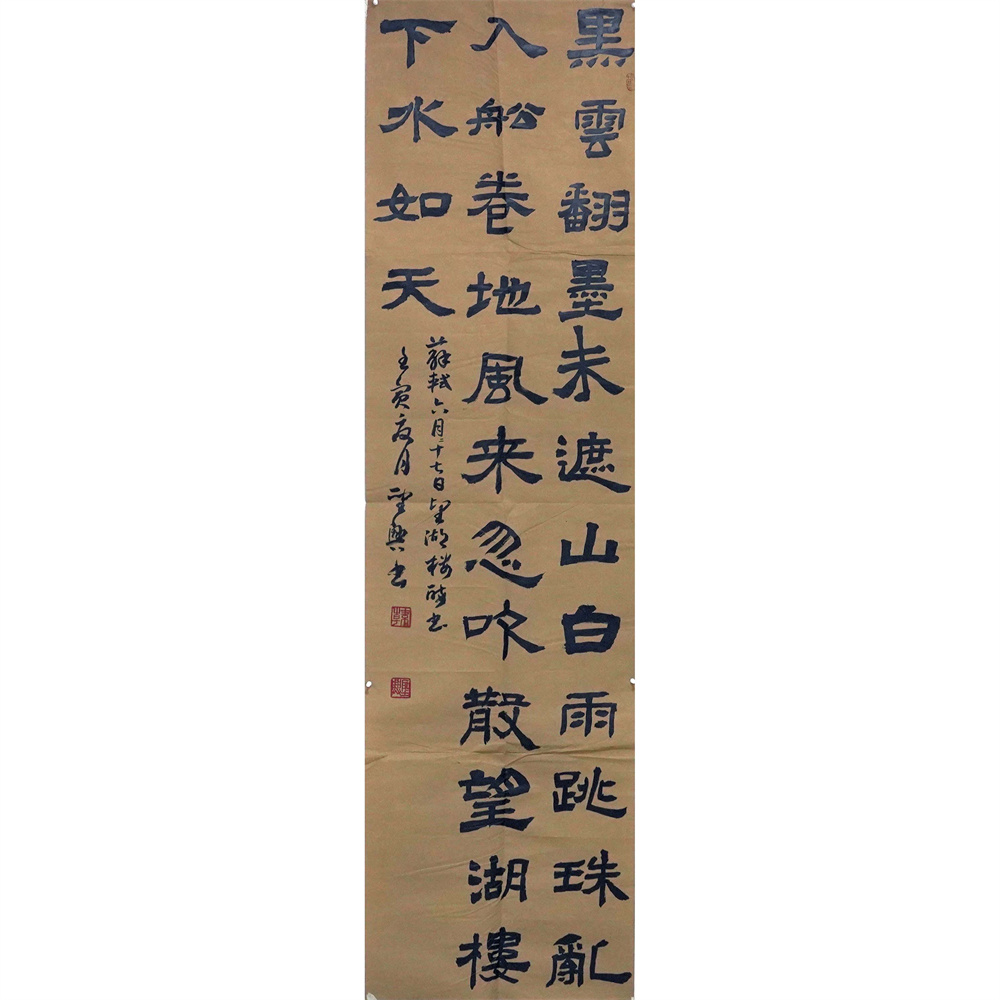 黒雲翻墨未遮山白雨跳珠亂
入船卷地風来忽吹散望湖樓
下水如天
蘇軾六月二十七日望湖樓醉書
壬寅夏月聖興書